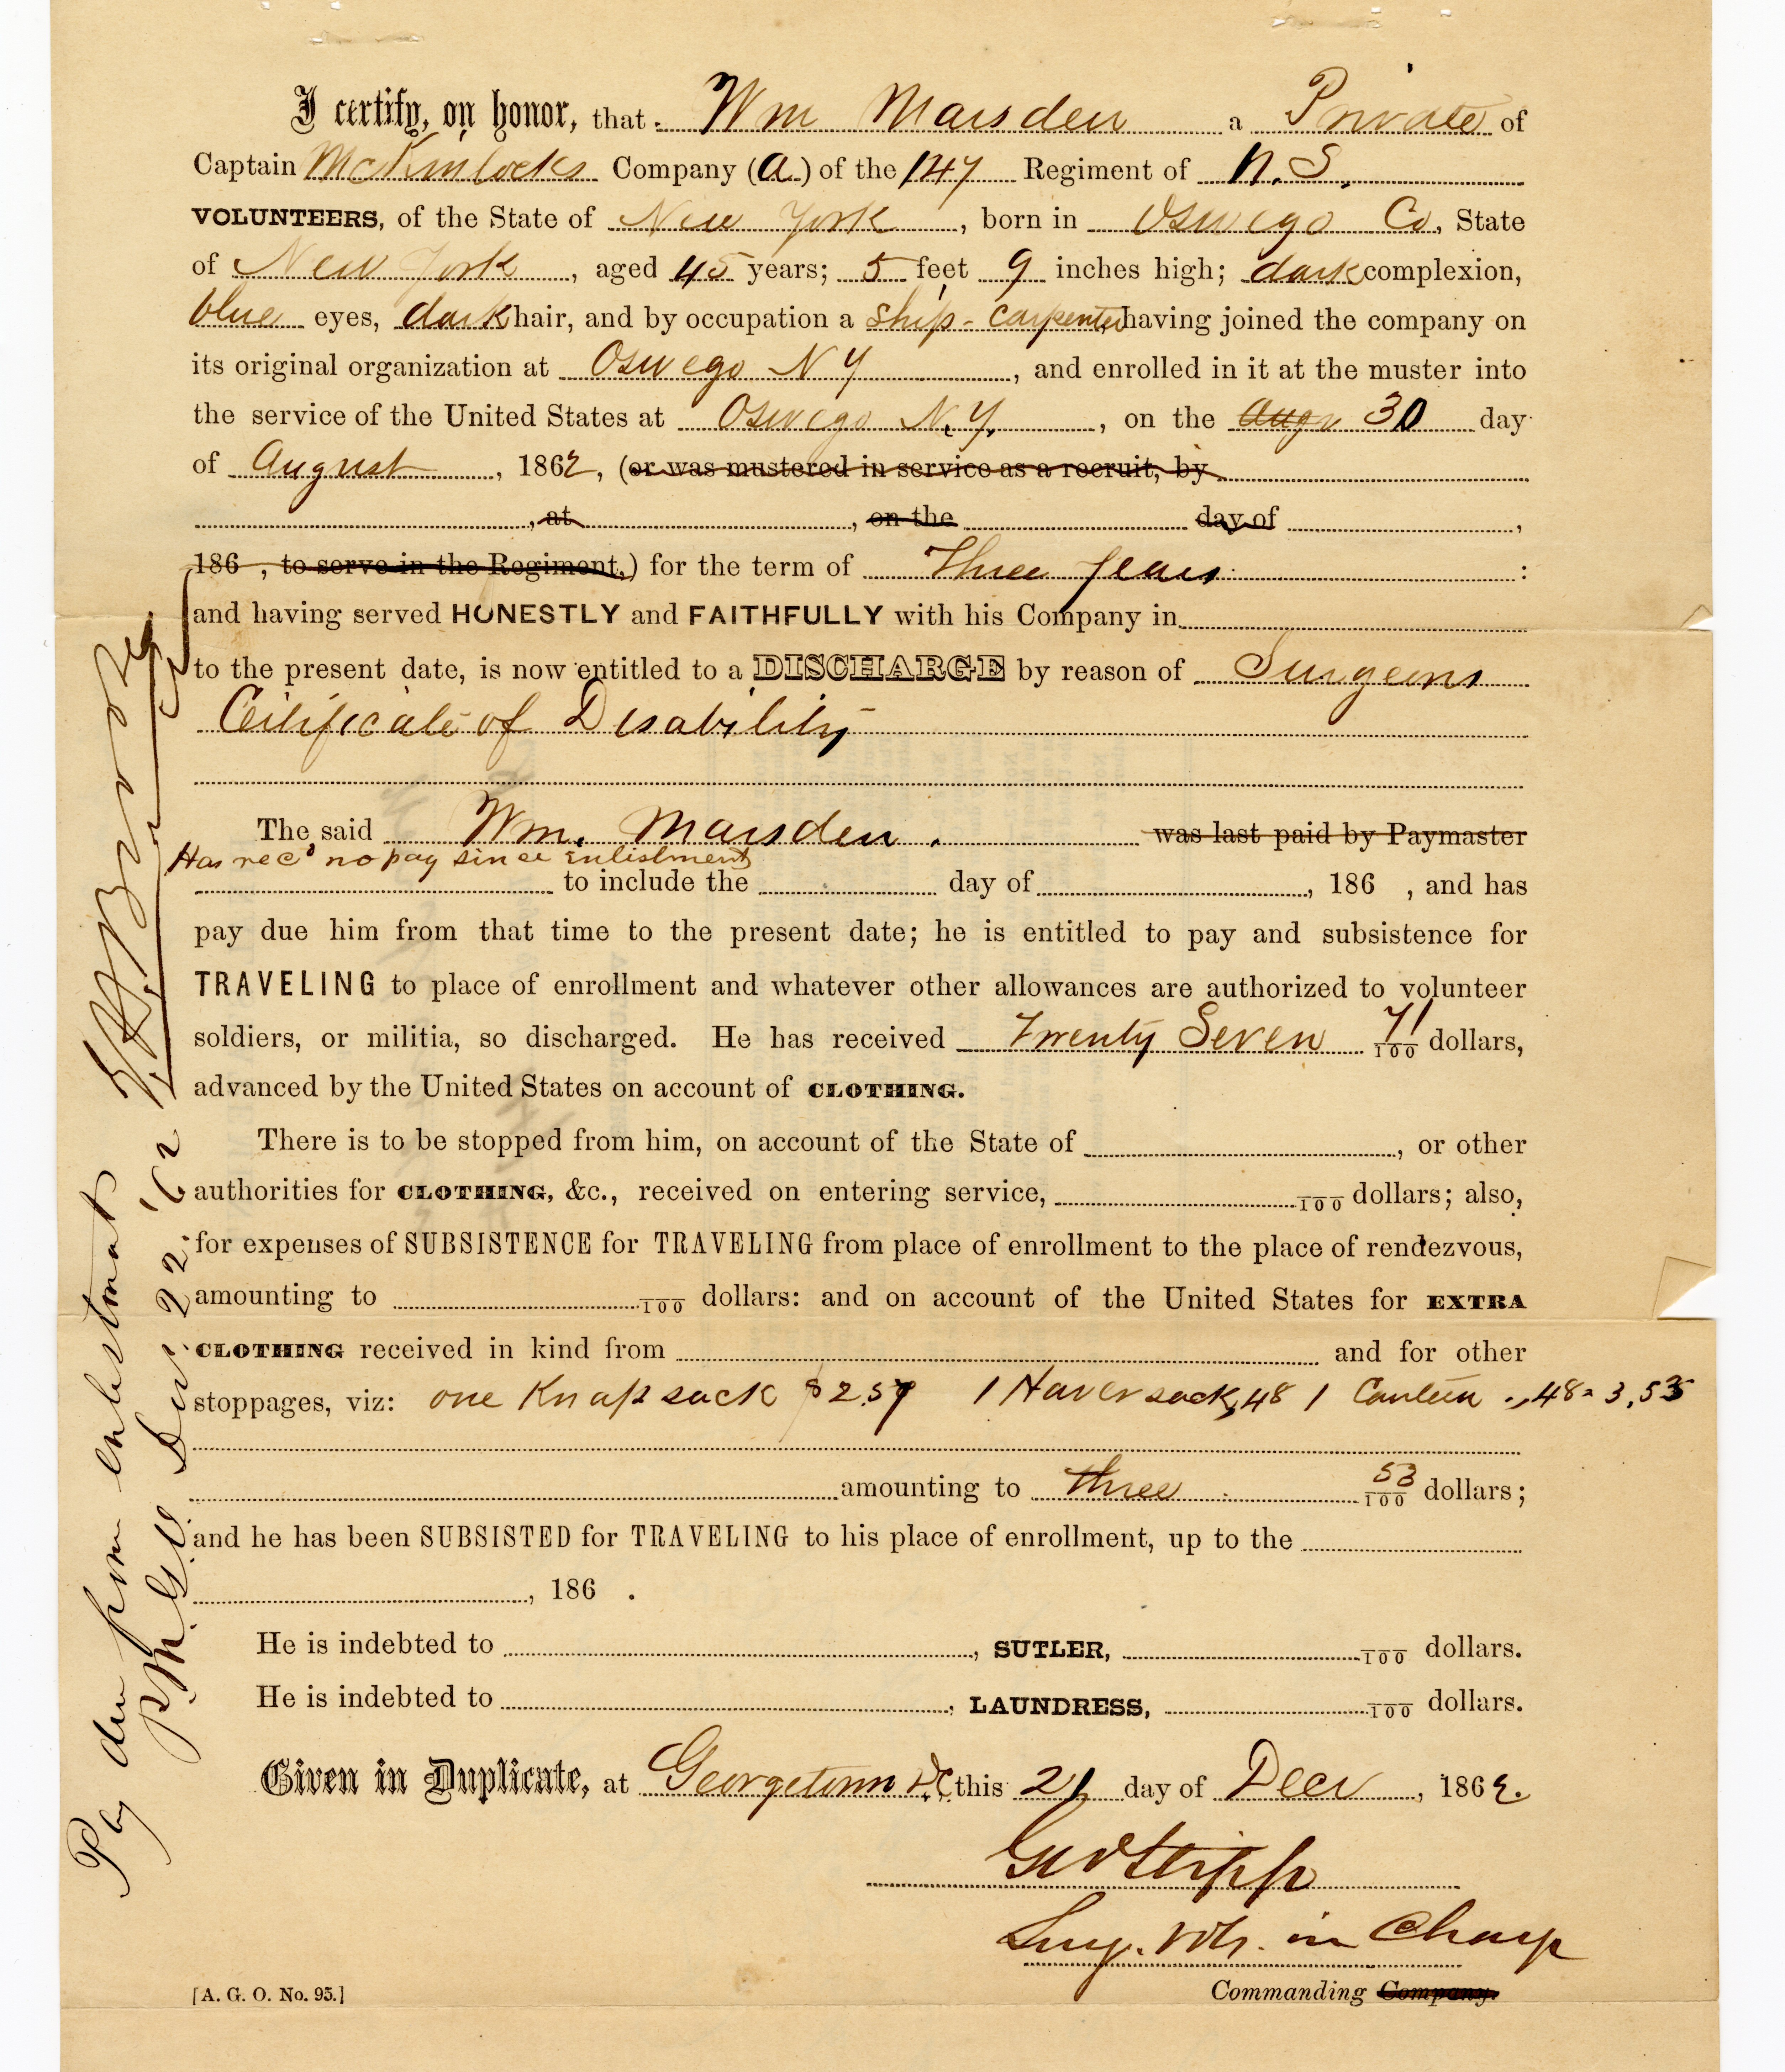 I certify, on honor, that Wm Marsden a Private of
Captain McKinlocks Company (A) of the 147 Regiment of N. S.
VOLUNTEERS, of the State of New York, born in Oswego Co, State
of New York, aged 45 years; 5 feet 9 inches high; dark complexion,
blue eyes, dark hair, and by occupation a Ship-Carpenter having joined the company on
its original organization at Oswego N Y, and enrolled in it at the muster into
the service of the United States at Oswego N.Y., on the Augu 30 day
of August, 1862, (or was mustered in service as a recruit, by
, at , on the day of ,
186 , to serve in the Regiment,) for the term of Three years :
and having served HONESTLY and FAITHFULLY with his Company in
to the present date, is now entitled to a DISCHARGE by reason of Surgeons
Certificate of Disability
The said Wm. Marsden. was last paid by Paymaster
Has recd no pay since enlistment
to include the day of , 186 , and has
pay due him from that time to the present date; he is entitled to pay and subsistence for
TRAVELING to place of enrollment and whatever other allowances are authorized to volunteer
soldiers, or militia, so discharged. He has received Twenty Seven 71/100 dollars,
advanced by the United States on account of CLOTHING.
There is to be stopped from him, on account of the State of , or other
authorities for CLOTHING, &c., received on entering service, /100 dollars; also,
for expenses of SUBSISTENCE for TRAVELING from place of enrollment to the place of rendezvous,
amounting to /100 dollars: and on account of the United States for EXTRA
CLOTHING received in kind from and for other
stoppages, viz: one Knapsack $2.57 1 Haversack,48 1 Canteen .,48= 3,53
amounting to three 53/100 dollars;
and he has been SUBSISTED for TRAVELING to his place of enrollment, up to the
, 186 .
He is indebted to , SUTLER, /100 dollars.
He is indebted to , LAUNDRESS, /100 dollars.
Given in Duplicate, at Georgetown D.C. this 21 day of Decr, 1862.
Surg. Vols. in Charge
[A. G. O. No. 95.]
Commanding Company.
Pay due from enlistment
22 '62